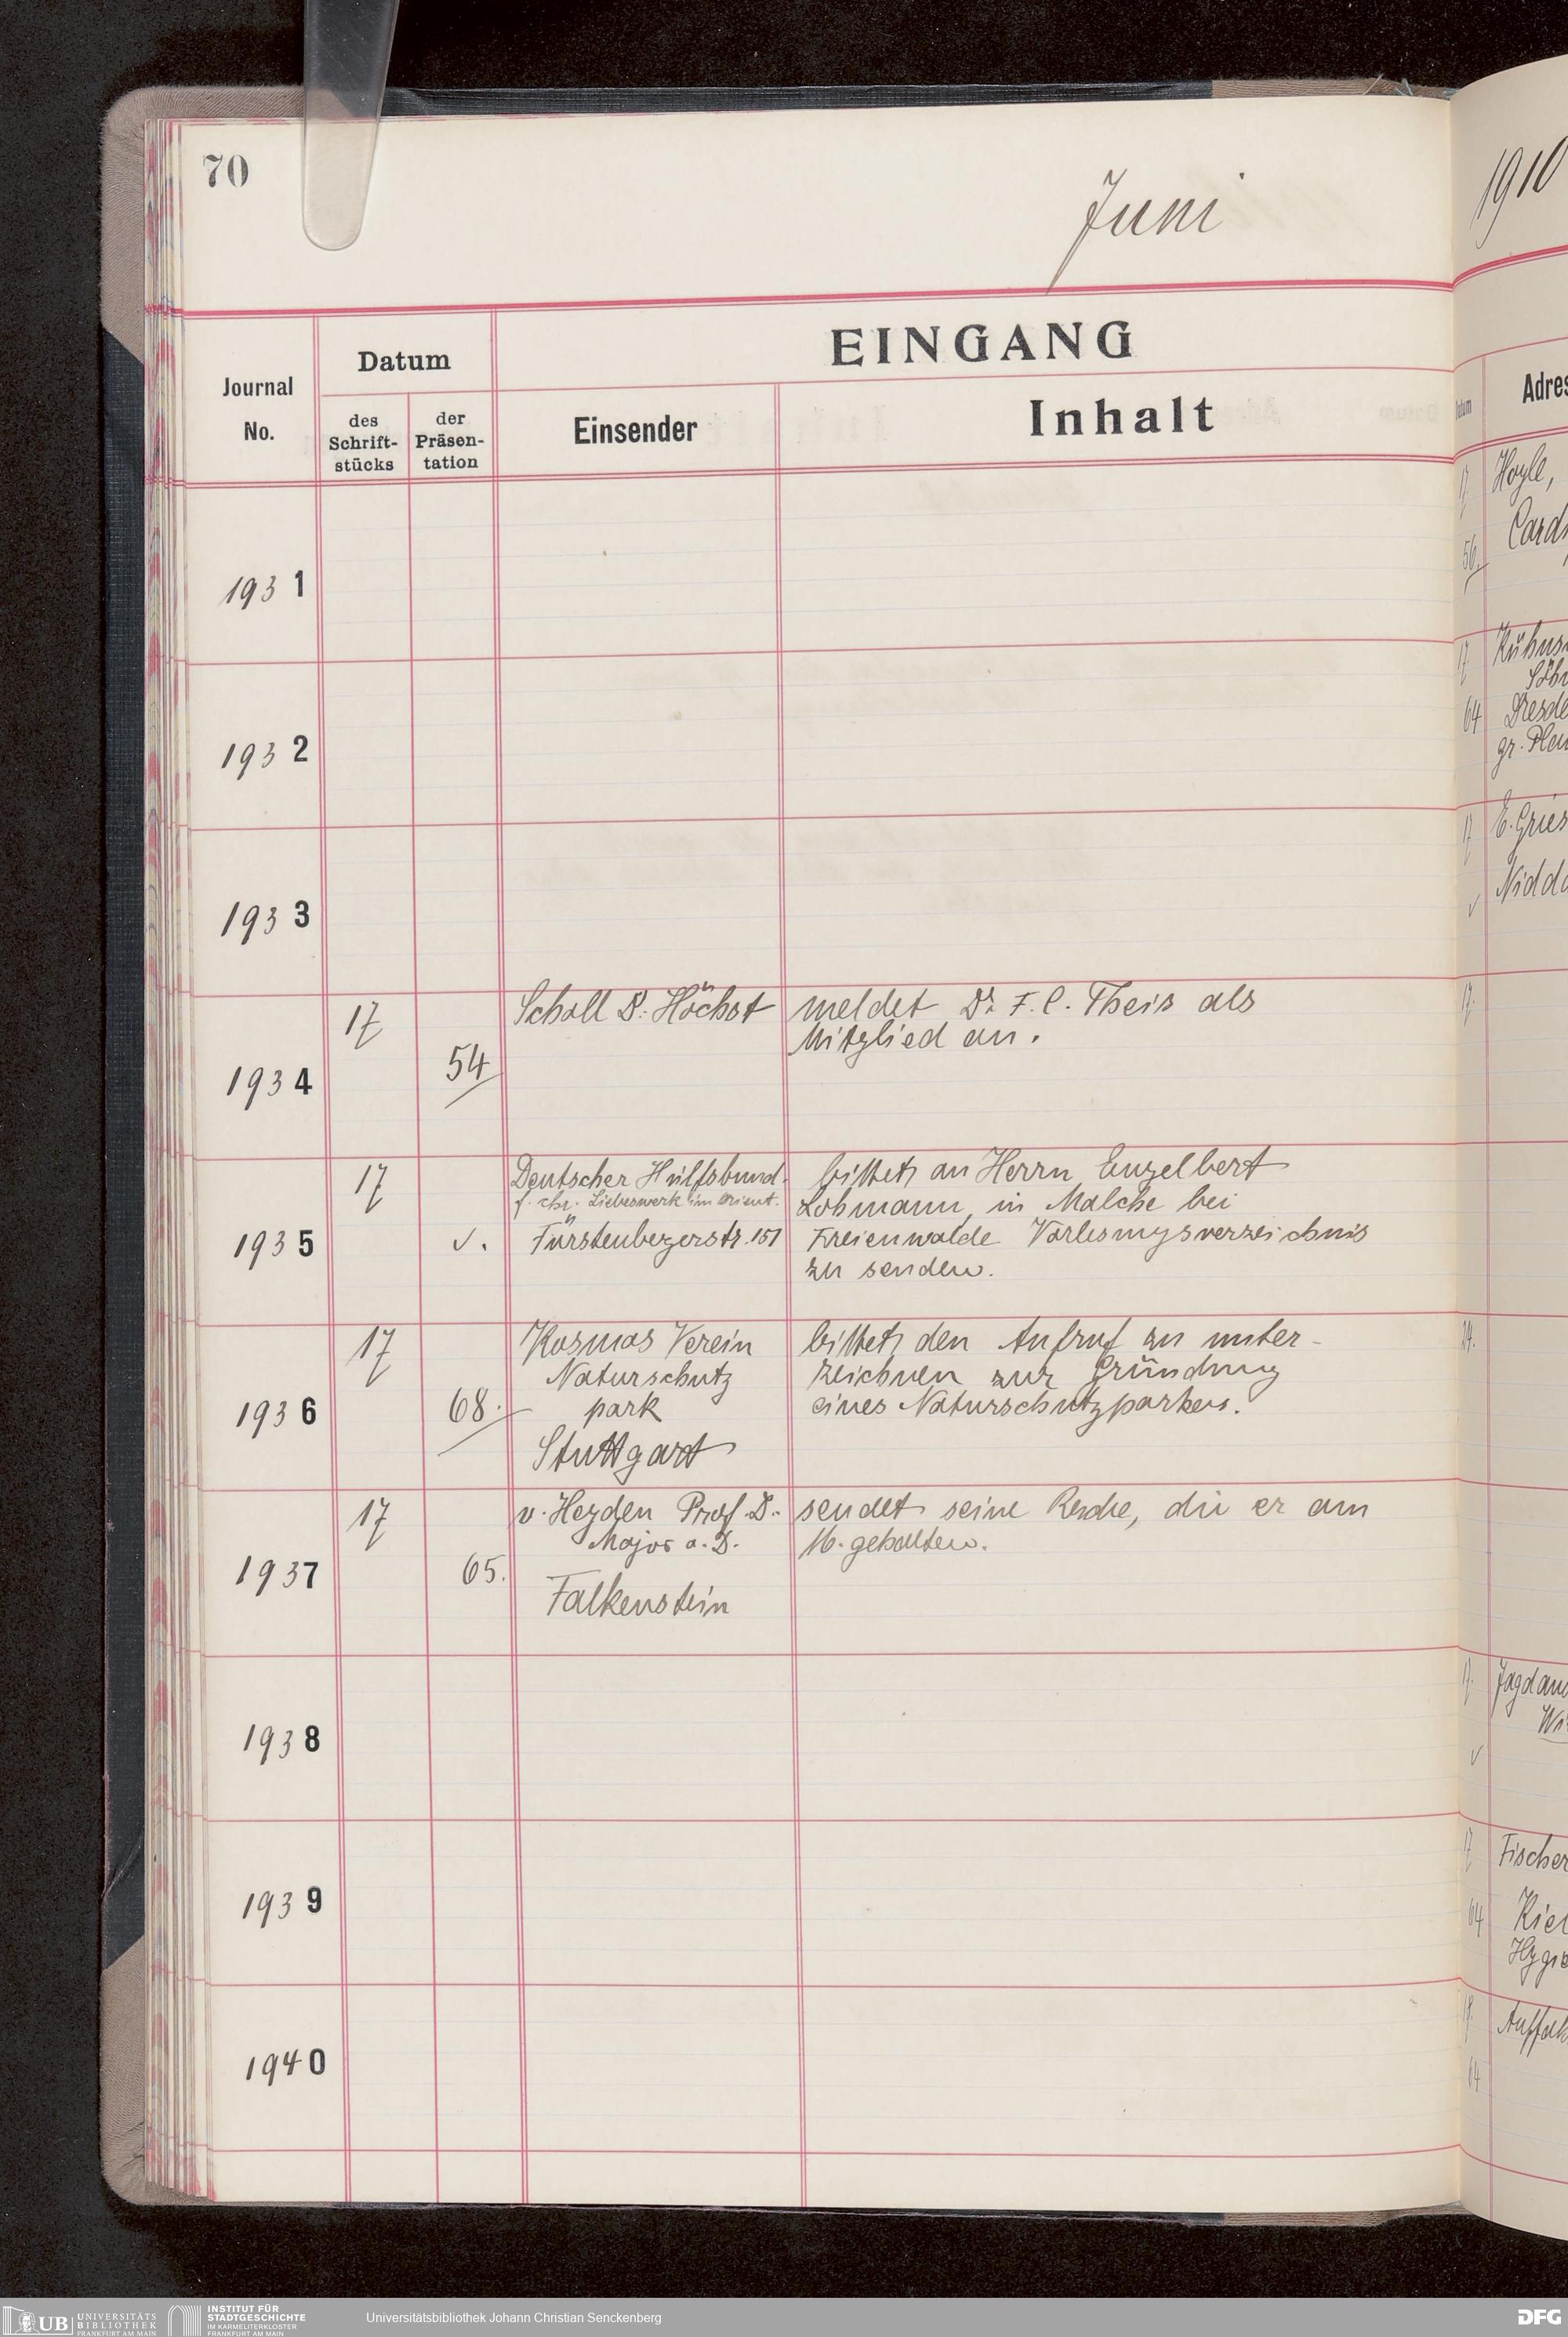 70
Juni
1910
EINGANG
Datum
Journal
No.
des
Schrift-
stücks
der
Präsen-
tation
Einsender
Inhalt
Datum
Adres
1931
1932
1933
1934
17
54
Scholl D. Höchst
meldet Dr. F. C. Theis als
Mitglied an.
1935
17
v.
Deutscher Hülfsbund
f. chr. Liebeswerk im Orient.
Fürstenbergerstr. 151
bittet an Herrn Engelbert
Lohmann, in Malche bei
Freienwalde Vorlesungsverzeichnis
zu senden.
1936
17
68.
Kosmos Verein
Naturschutz
park
Stuttgart
bittet den Aufruf zu unter-
zeichnen zur Gründung
eines Naturschutzparkes.
1937
17
65.
v. Heyden Prof. D.
Major a. D.
Falkenstein
sendet seine Rede, die er am
16. gehalten.
1938
1939
1940
17
Hoyle,
56.
Card
17
Kühns
Söhn
64
Dresde
gr. Plau
17
E. Gries
Nidda
17.
24.
17.
Jagdau
17
Fischer
64
Kiel
Hygie
64
UB UNIVERSITÄTS
BIBLIOTHEK
FRANKFURT AM MAIN
INSTITUT FÜR
STADTGESCHICHTE
IM KARMELITERKLOSTER
FRANKFURT AM MAIN
Universitätsbibliothek Johann Christian Senckenberg
DFG